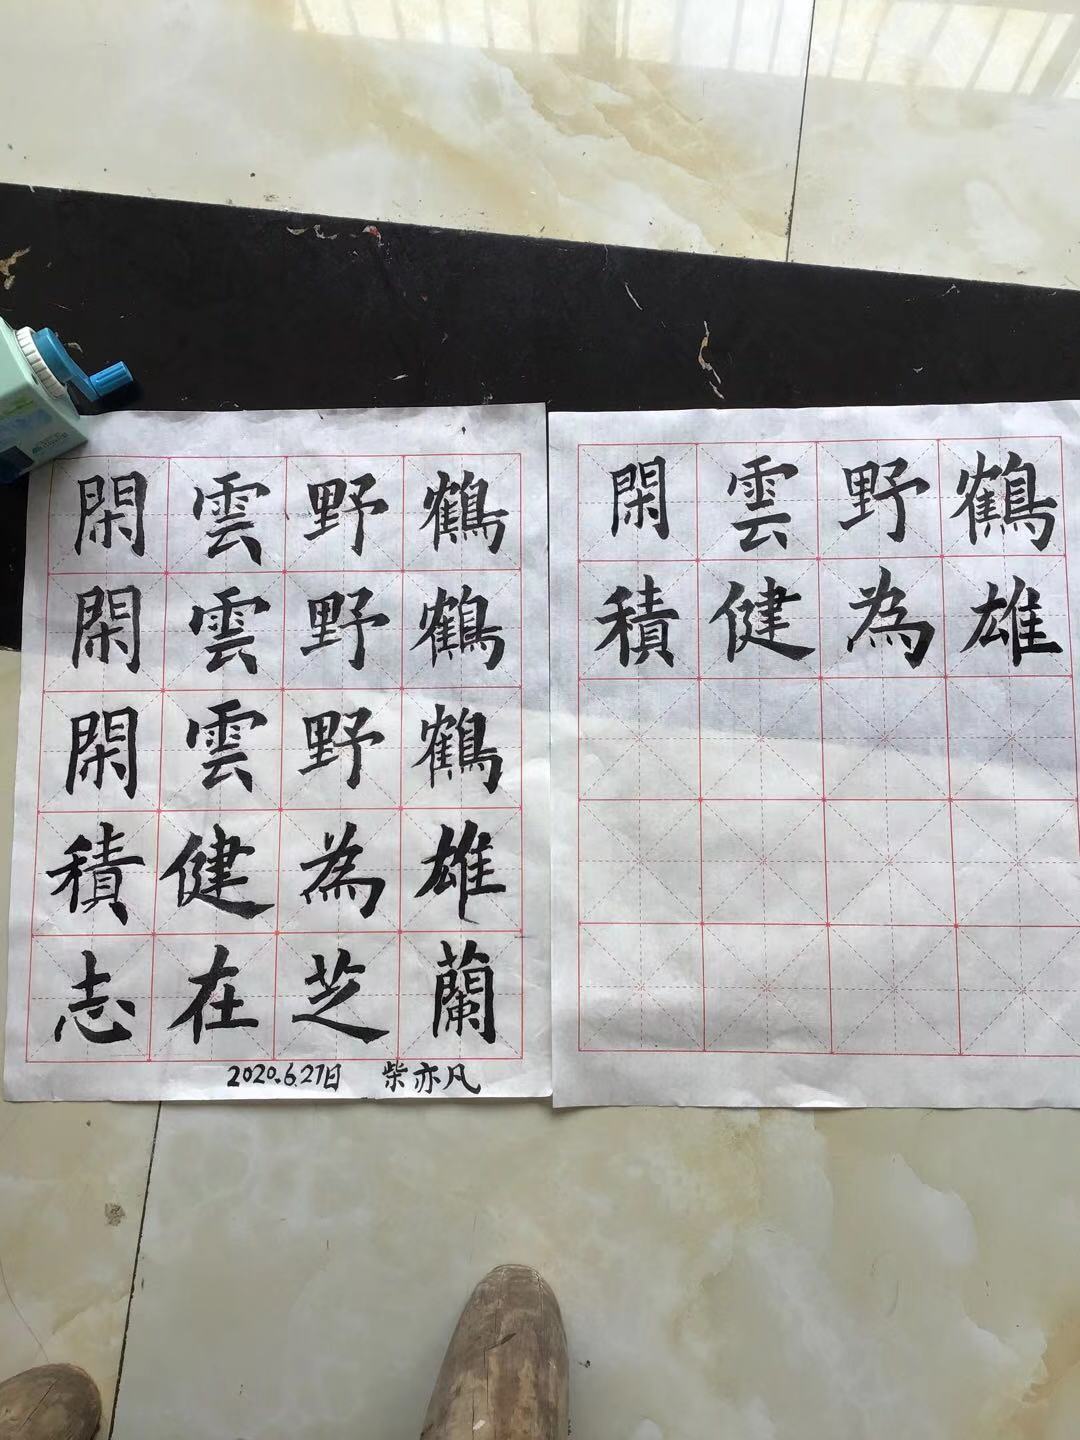 閑雲野鶴
閑雲野鶴
閑雲野鶴
積健為雄
志在芝蘭
2020.6.27日 柴亦凡
閑雲野鶴
積健為雄